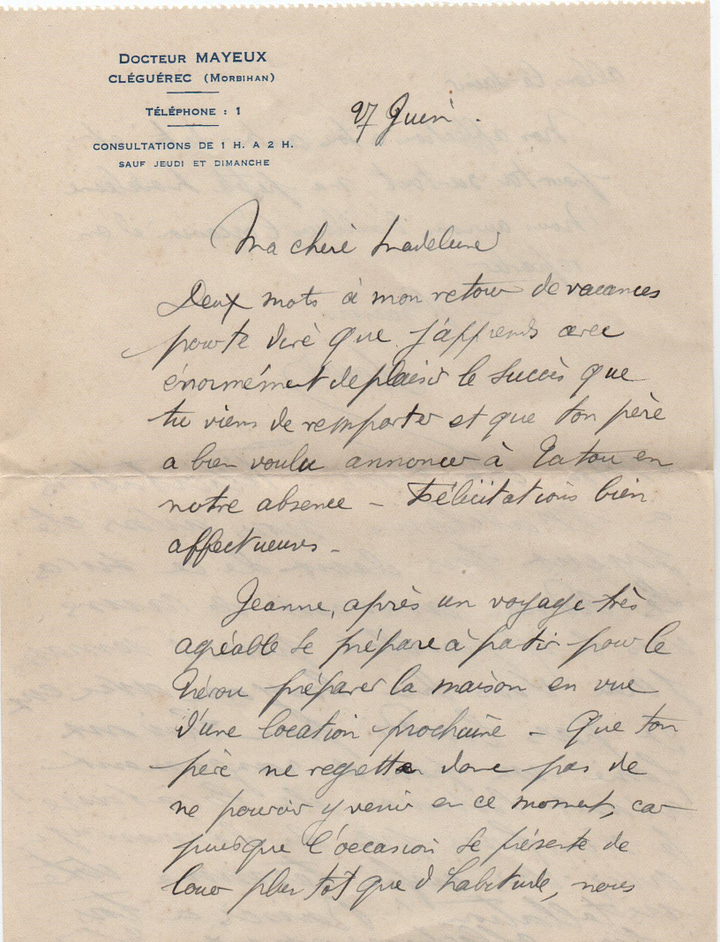 DOCTEUR MAYEUX
CLÉGUÉREC (MORBIHAN)
TÉLÉPHONE : 1
CONSULTATIONS DE 1 H. A 2 H.
SAUF JEUDI ET DIMANCHE
27 Juin.
Ma chère Madeleine
Deux mots à mon retour de vacances
pour te dire que j'apprends avec
énormément de plaisir le succès que
tu viens de remporter et que ton père
a bien voulu annoncer à Tatou en
notre absence – Félicitations bien
affectueuses –
Jeanne, après un voyage très
agréable se prépare à partir pour le
préparer la maison en vue
d'une location prochaine – Que ton
père ne regrette donc pas de
ne pouvoir y venir en ce moment, car
puisque l'occasion se présente de
louer plus tôt que d'habitude, nous